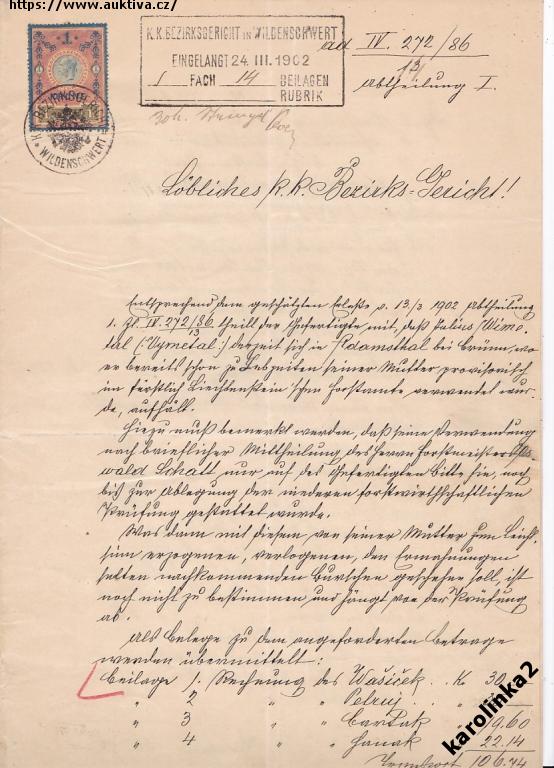 https://www.auktiva.cz/
K.K. BEZIRKSGERICHT in WILDENSCHWERT
EINGELANGT 24. III. 1902
1 FACH 14 BEILAGEN
RUBRIK
ad IV. 272/86
13
Abtheilung I.
1
WILDENSCHWERT
Löbliches k. k. Bezirks-Gericht!
Entsprechend dem geschätzten Erlaße v. 13/3 1902 Abtheilung
1. Zl. IV. 272/86 theilt der Gefertigte mit, daß Julius Wimo-
13
tal (: Vymetal :) derzeit sich in Adamsthal bei Brünn, wo
er bereits schon zu Lebzeiten seiner Mutter provisorisch
im fürstlich Liechtenstein'schen Forstamte verwendet wur-
de, aufhält.
Hiezu muß bemerkt werden, daß seine Verwendung
nach brieflicher Mittheilung des Herrn Forstmeister Os-
wald Schatt nur auf des Gefertigten Bitte hin, noch
bis zur Ablegung der niederen forstwirthschaftlichen
Prüfung gestattet wurde.
Was dann mit diesem, von seiner Mutter zum Leicht-
sinn erzogenen, verlogenen, den Ermahnungen
selten nachkommenden Burschen geschehen soll, ist
noch nicht zu bestimmen und hängt von der Prüfung
ab.
Als Belege zu dem angeforderten Betrage
werden übermittelt:
Beilage 1. Rechnung des Wašiček . K. 30
" 2 " " "
" 3 " " 19.60
" 4 " " Hanak " 22.14
106.74
karolinka2